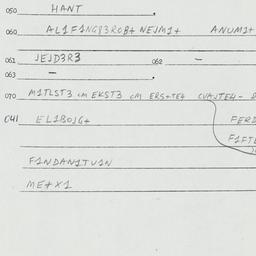 050 HANT
060 AL1F1NG83R0B+ NEJM1+ ANUM1+
061 JEJD3R3 062 -
063 -
070 M1TLST3 cM EKST3 cM ERS+TE+ CVAJTEH-
041 EL1BOJG+ FERD
F1FTE
F1NDAN1TU1N
ME+X1